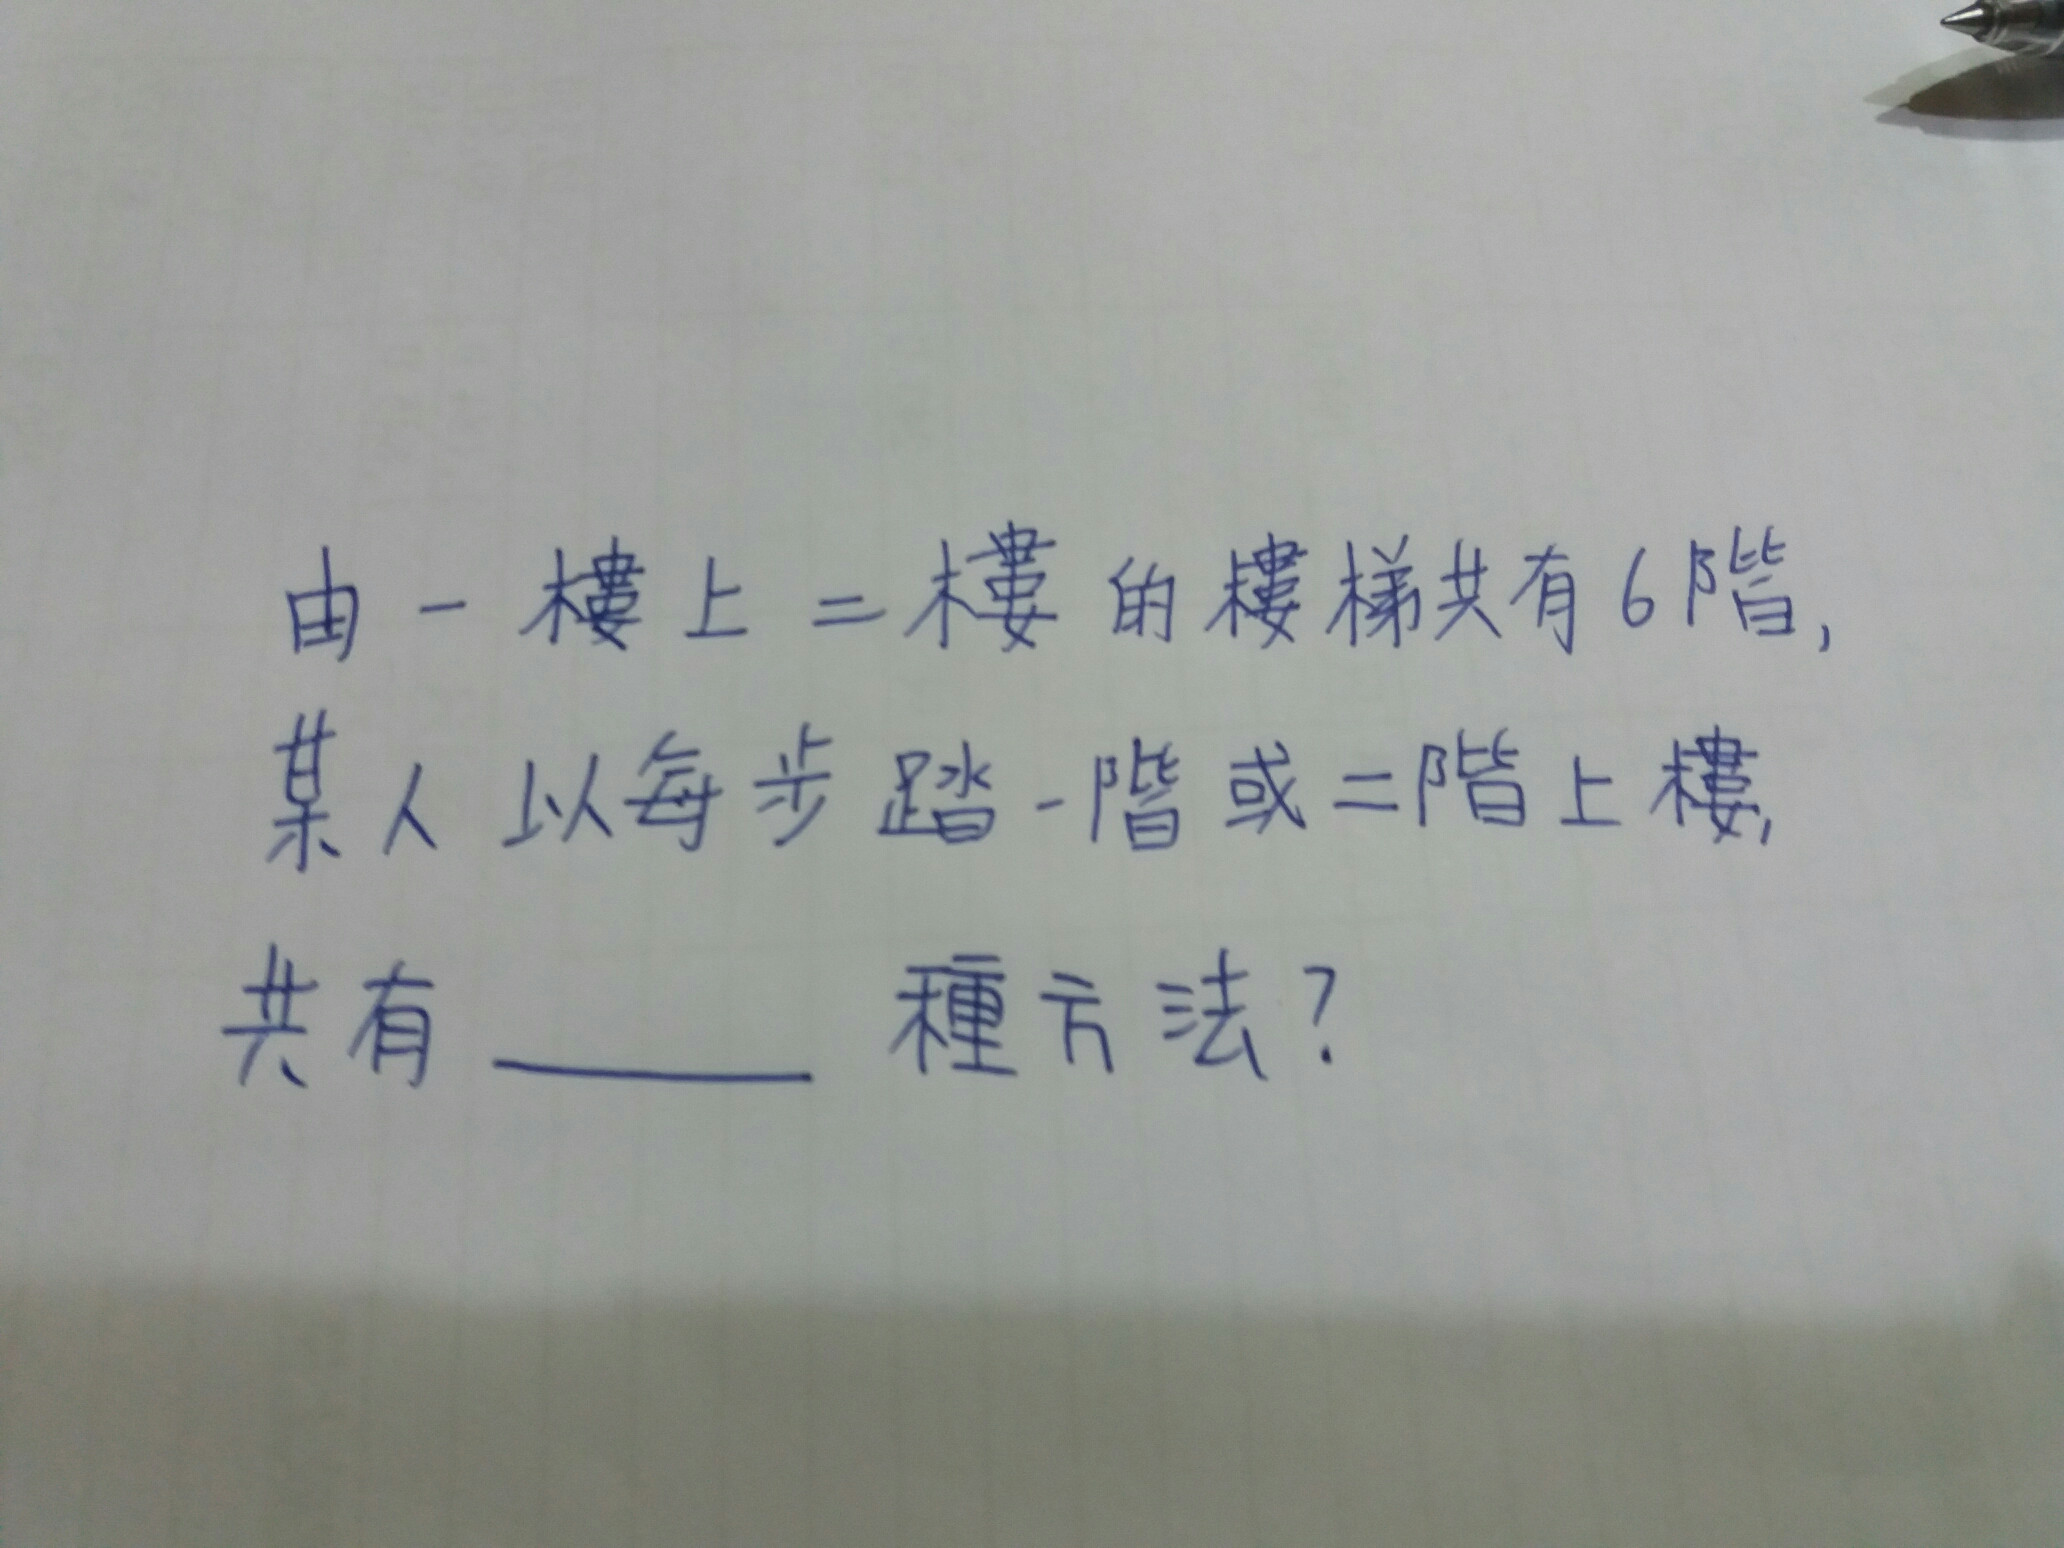 由一樓上二樓的樓梯共有6階,
某人以每步踏一階或二階上樓,
共有______種方法?